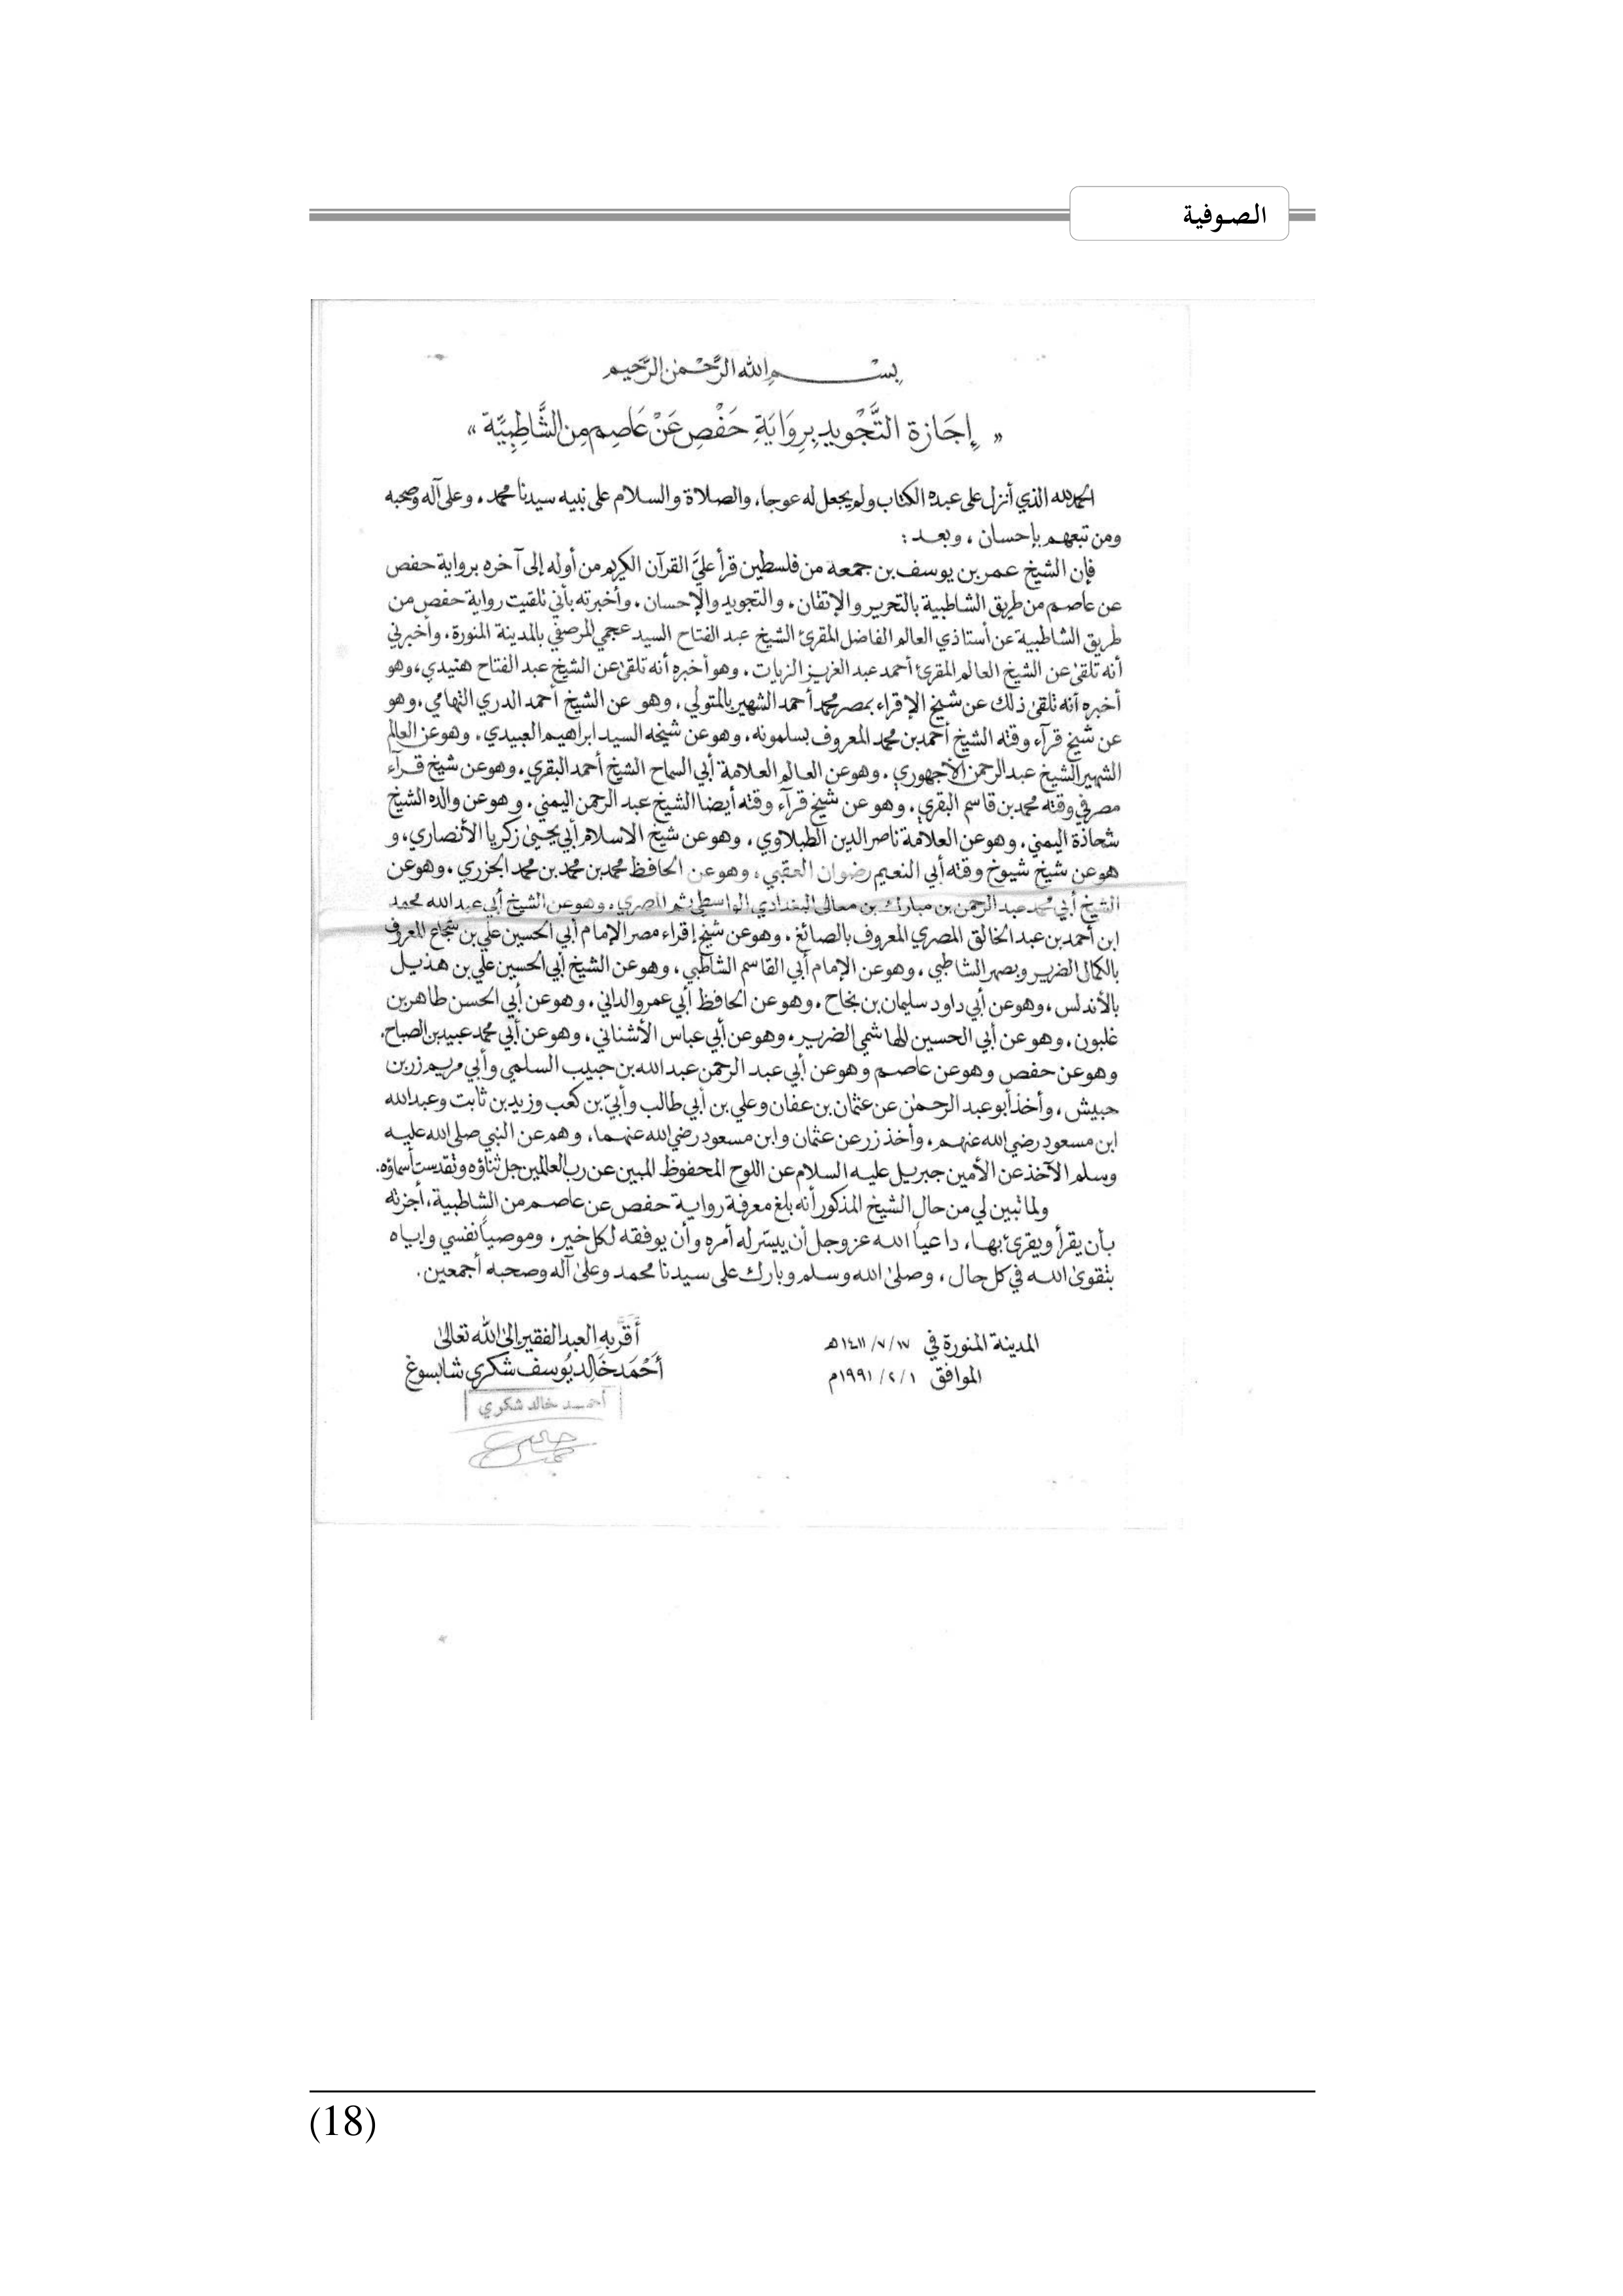 الصوفية
بِسْمِ اللهِ الرَّحْمٰنِ الرَّحِيم
« إِجَازَة التَّجْوِيد بِرِوَايَةِ حَفْصٍ عَنْ عَاصِمٍ مِنَ الشَّاطِبِيَّة »
الحمد لله الذي أنزل على عبده الكتاب ولم يجعل له عوجا، والصلاة والسلام على نبيه سيدنا محمد، وعلى آله وصحبه
ومن تبعهم بإحسان ، وبعد :
فإن الشيخ عمر بن يوسف بن جمعة من فلسطين قرأ عليَّ القرآن الكريم من أوله إلى آخره برواية حفص
عن عاصم من طريق الشاطبية بالتحرير والإتقان، والتجويد والإحسان، وأخبرته بأني تلقيت رواية حفص من
طريق الشاطبية عن أستاذي العالم الفاضل المقرئ الشيخ عبد الفتاح السيد عجمي المرصفي بالمدينة المنورة، وأخبرني
أنه تلقى عن الشيخ العالم المقرئ أحمد عبد العزيز الزيات، وهو أخبره أنه تلقى عن الشيخ عبد الفتاح هنيدي، وهو
أخبره أنه تلقى ذلك عن شيخ الإقراء بمصر محمد أحمد الشهير بالمتولي، وهو عن الشيخ أحمد الدري التهامي، وهو
عن شيخ قرآء وقته الشيخ أحمد بن محمد المعروف بسلمونه، وهو عن شيخه السيد ابراهيم العبيدي، وهو عن العالم
الشهير الشيخ عبد الرحمن الأجهوري، وهو عن العالم العلامة أبي السماح الشيخ أحمد البقري، وهو عن شيخ قرآء
مصر في وقته محمد بن قاسم البقري، وهو عن شيخ قرآء وقته أيضا الشيخ عبد الرحمن اليمني، وهو عن والده الشيخ
شحاذة اليمني، وهو عن العلامة ناصر الدين الطبلاوي، وهو عن شيخ الاسلام أبي يحيىٰ زكريا الأنصاري، و
هو عن شيخ شيوخ وقته أبي النعيم رضوان العقبي، وهو عن الحافظ محمد بن محمد بن محمد الجزري، وهو عن
الشيخ أبي محمد عبد الرحمن بن مبارك بن معالي البغدادي الواسطي ثم المصري، وهو عن الشيخ أبي عبد الله محمد
ابن أحمد بن عبد الخالق المصري المعروف بالصائغ، وهو عن شيخ إقراء مصر الإمام أبي الحسين علي بن شجاع المعروف
بالكمال الضرير وبصهر الشاطبي، وهو عن الإمام أبي القاسم الشاطبي، وهو عن الشيخ أبي الحسين علي بن هذيل
بالأندلس، وهو عن أبي داود سليمان بن نجاح، وهو عن الحافظ أبي عمرو الداني، وهو عن أبي الحسن طاهر بن
غلبون، وهو عن أبي الحسين الهاشمي الضرير، وهو عن أبي عباس الأشناني، وهو عن أبي محمد عبيد بن الصباح،
وهو عن حفص وهو عن عاصم وهو عن أبي عبد الرحمن عبد الله بن حبيب السلمي وأبي مريم زر بن
حبيش، وأخذ أبو عبد الرحمٰن عن عثمان بن عفان وعلي بن أبي طالب وأبيّ بن كعب وزيد بن ثابت وعبد الله
ابن مسعود رضي الله عنهم، وأخذ زر عن عثمان وابن مسعود رضي الله عنهما، وهم عن النبي صلى الله عليه
وسلم الآخذ عن الأمين جبريل عليه السلام عن اللوح المحفوظ المبين عن رب العالمين جل ثناؤه وتقدست أسماؤه.
ولما تبين لي من حال الشيخ المذكور أنه بلغ معرفة رواية حفص عن عاصم من الشاطبية، أجزته
بأن يقرأ ويقرئ بها، داعياً الله عز وجل أن ييسّر له أمره وأن يوفقه لكل خير، وموصياً نفسي وإياه
بتقوىٰ الله في كل حال، وصلىٰ الله وسلم وبارك على سيدنا محمد وعلىٰ آله وصحبه أجمعين.
المدينة المنورة في ١٧/ ٧/ ١٤١١هـ
الموافق ١/ ٢/ ١٩٩١م
أَقَرَّ بِهِ العبد الفقير إلىٰ الله تعالىٰ
أَحْمَد خَالِد يُوسف شكري شابسوغ
أحمد خالد شكري
(18)